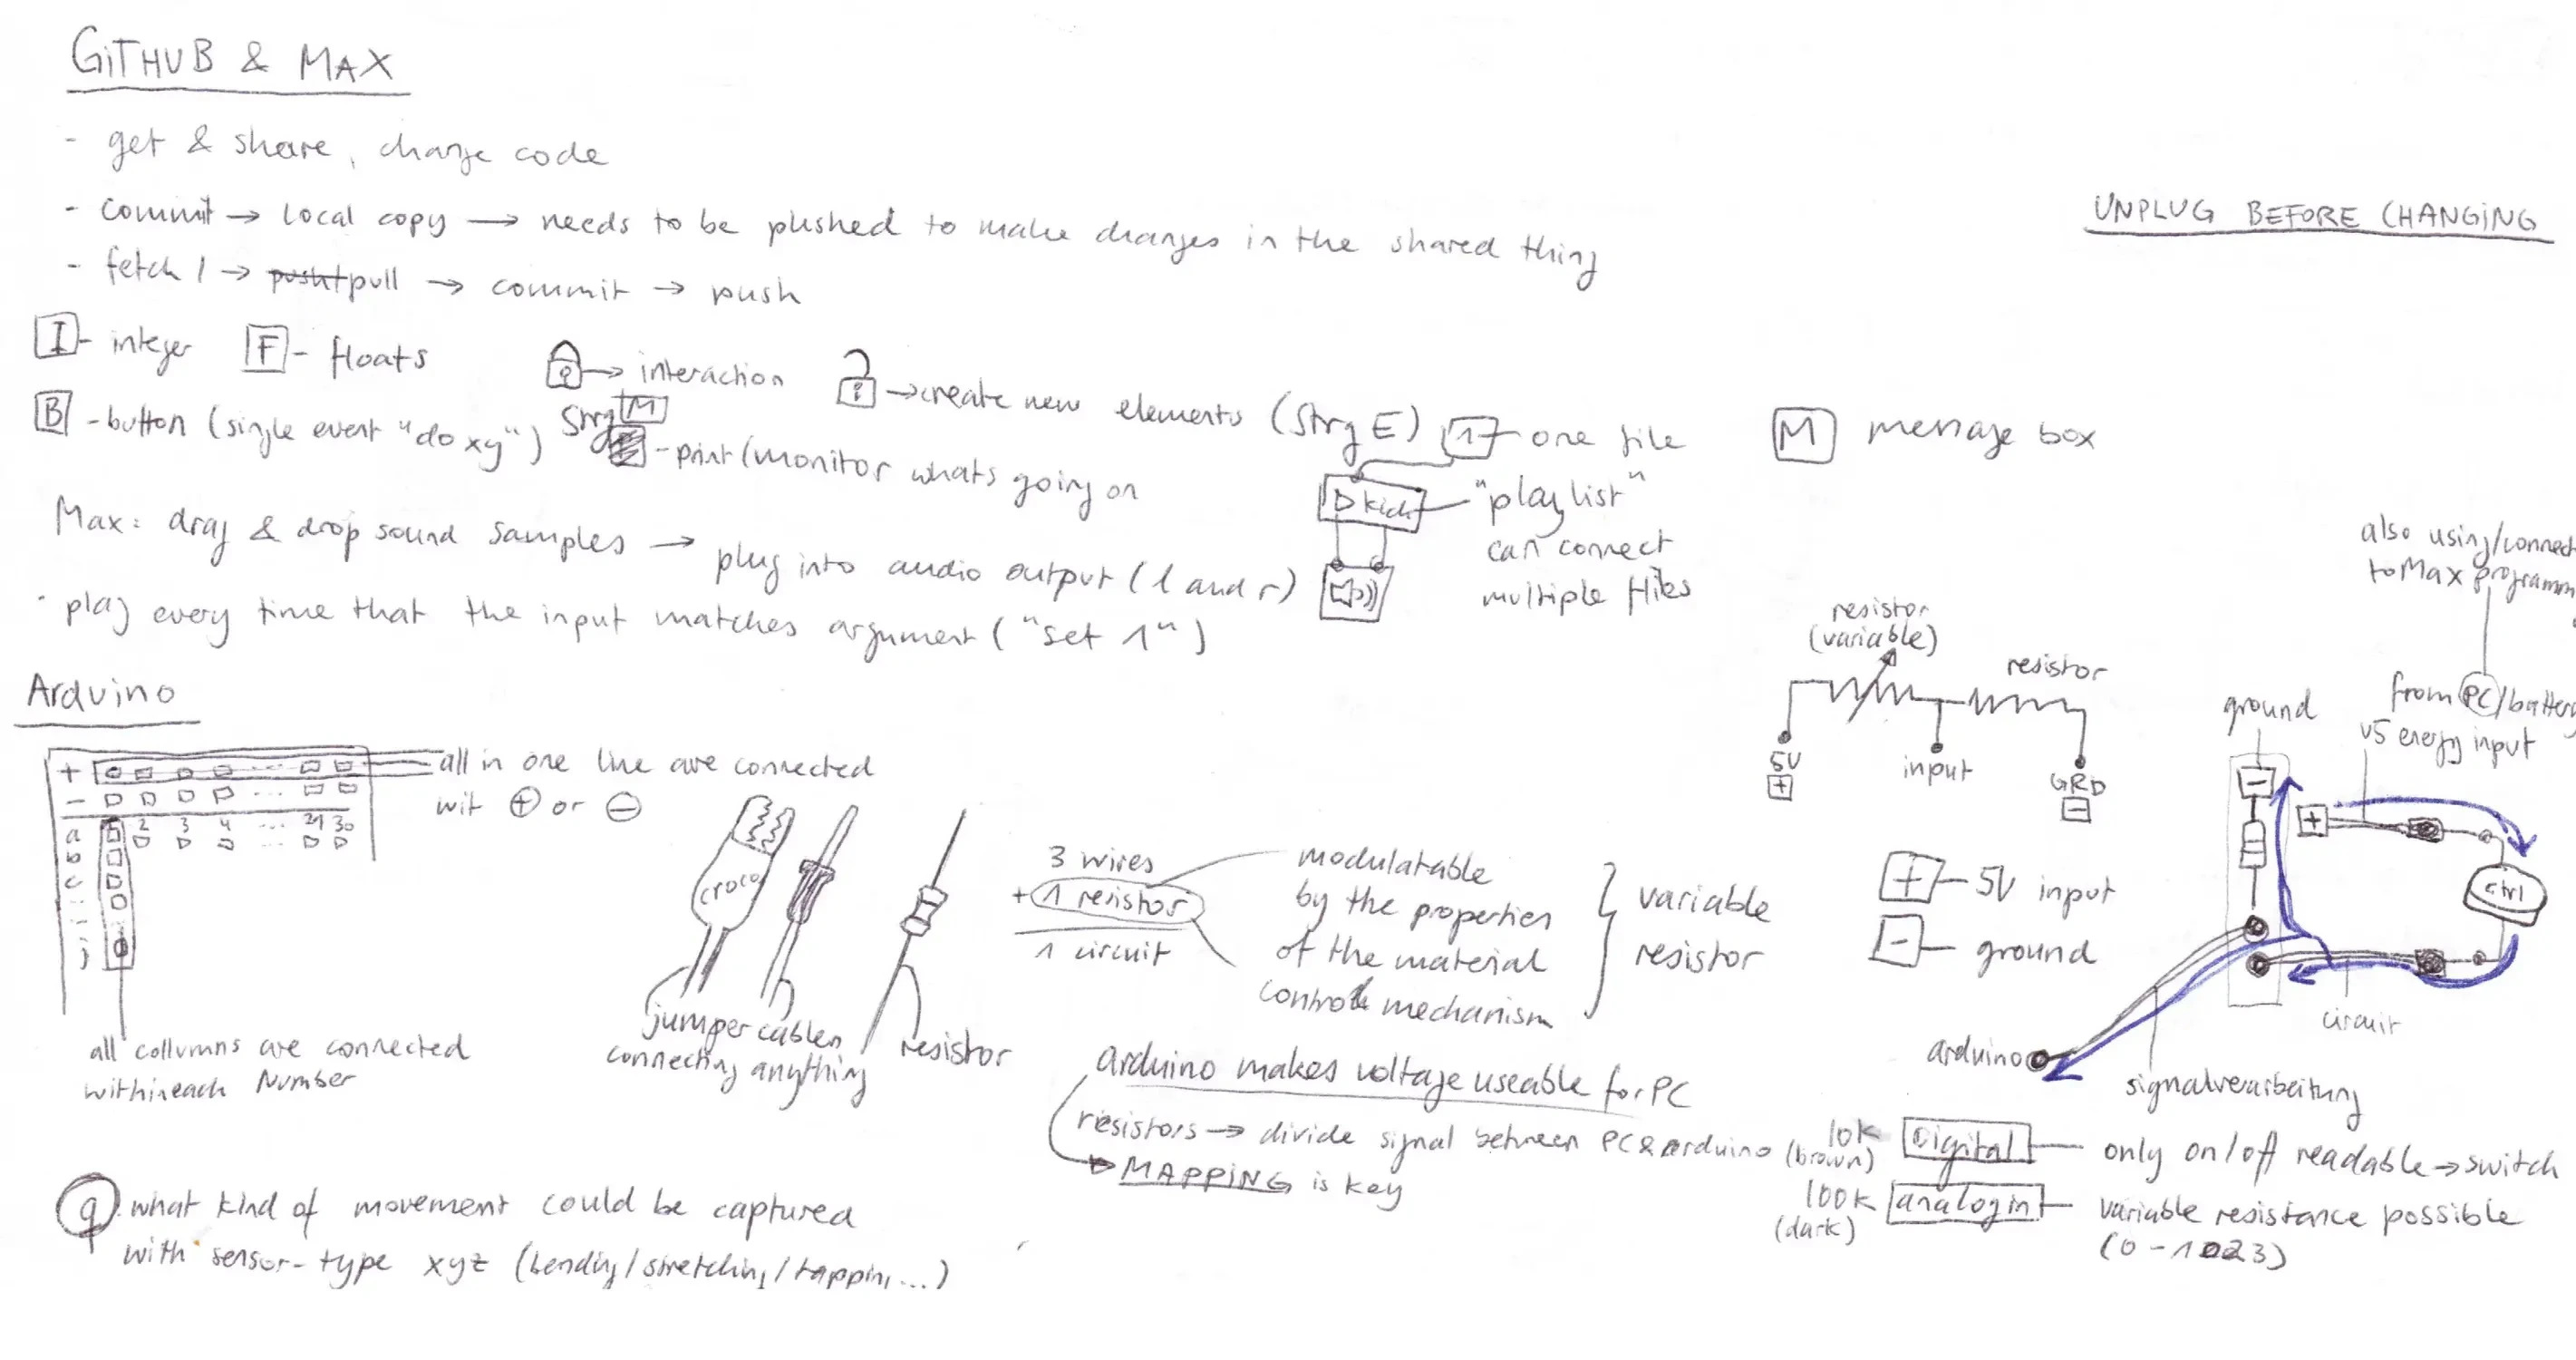 GITHUB & MAX
- get & share, change code
- commit → local copy → needs to be pushed to make changes in the shared thing
- fetch → pull → commit → push
UNPLUG BEFORE CHANGING
I - integer F - floats
→ interaction
→ create new elements (Strg E)
B - button (single event "do xy")
Strg M
- print (monitor whats going on
1 - one file
kick
"playlist"
can connect
multiple files
M message box
Max: drag & drop sound samples → plug into audio output (l and r)
· play every time that the input matches argument ("set 1")
Arduino
+ ...
- ...
1 2 3 4 ... 29 30
a
b
c
j
all in one line are connected
wit + or -
all collumns are connected
within each Number
croco
jumper cables
connecting anything
resistor
3 wires
+ 1 resistor
1 circuit
modulatable
by the properties
of the material
control mechanism
variable
resistor
resistor
(variable)
resistor
5V
+
input
GRD
-
+ - 5V input
- - ground
also using/connect
to Max programm
from PC/battery
v5 energy input
ground
-
+
ctrl
circuit
arduino
signalverarbeitung
arduino makes voltage useable for PC
resistors → divide signal between PC & arduino
MAPPING is key
10k
(brown)
Digital - only on/off readable → switch
100k
(dark)
analog in - variable resistance possible
(0 - 1023)
q what kind of movement could be captured
with sensor-type xyz (bending/stretching/tapping...)